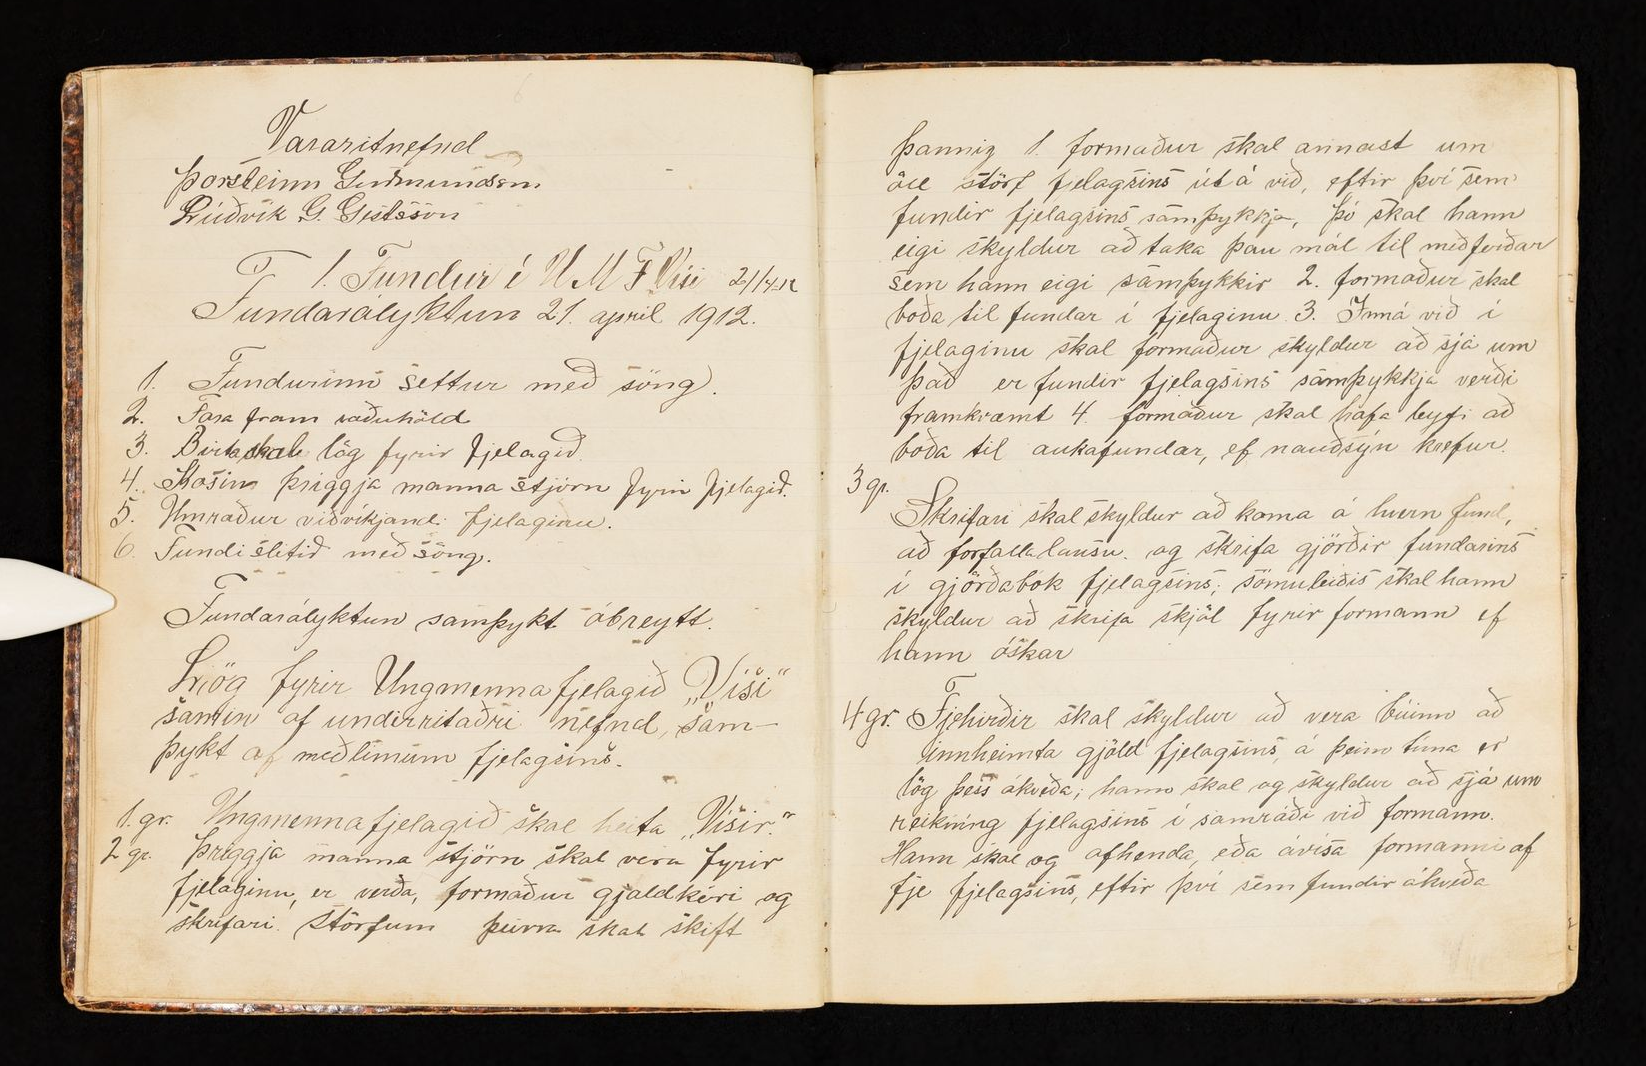 Vararitnefnd
Þorsteinn Guðmundsson
Lúðvík G. Gestsson
1. Fundur í U M F Vísi 21/4-12
Fundarályktun 21. apríl 1912.
1. Fundurinn settur með söng.
2. Fara fram ræðuhöld
3. Birta skal lög fyrir fjelagið.
4. Kosin þriggja manna stjórn fyrir fjelagið.
5. Umræður viðvíkjandi fjelaginu.
6. Fundi slitið með söng.
Fundarályktun samþykt óbreytt.
Lög fyrir Ungmennafjelagið „Vísi“
samin af undirritaðri nefnd, sam-
þykt af meðlimum fjelagsins.
1. gr. Ungmennafjelagið skal heita „Vísir.“
2 gr. Þriggja manna stjórn skal vera fyrir
fjelaginu, er verða, formaður gjaldkeri og
skrifari. Störfum þeirra skal skift
þannig 1. formaður skal annast um
öll störf fjelagsins út á við, eftir því sem
fundir fjelagsins samþykkja, þó skal hann
eigi skyldur að taka þau mál til meðferðar
sem hann eigi samþykkir 2. formaður skal
boða til fundar í fjelaginu 3. Inná við í
fjelaginu skal formaður skyldur að sjá um
það er fundir fjelagsins samþykkja verði
framkvæmt 4. formaður skal hafa leyfi að
boða til aukafundar, ef nauðsýn krefur.
3 gr.
Skrifari skal skyldur að koma á hvern fund,
að forfallalausu. og skrifa gjörðir fundarins
í gjörðabók fjelagsins; sömuleiðis skal hann
skyldur að skrifa skjöl fyrir formann ef
hann óskar
4 gr. Fjehirðir skal skyldur að vera búinn að
innheimta gjöld fjelagsins, á þeim tíma er
lög þess ákveða; hann skal og skyldur að sjá um
reikning fjelagsins í samráði við formann.
Hann skal og afhenda, eða ávísa formanni af
fje fjelagsins, eftir því sem fundir ákveða